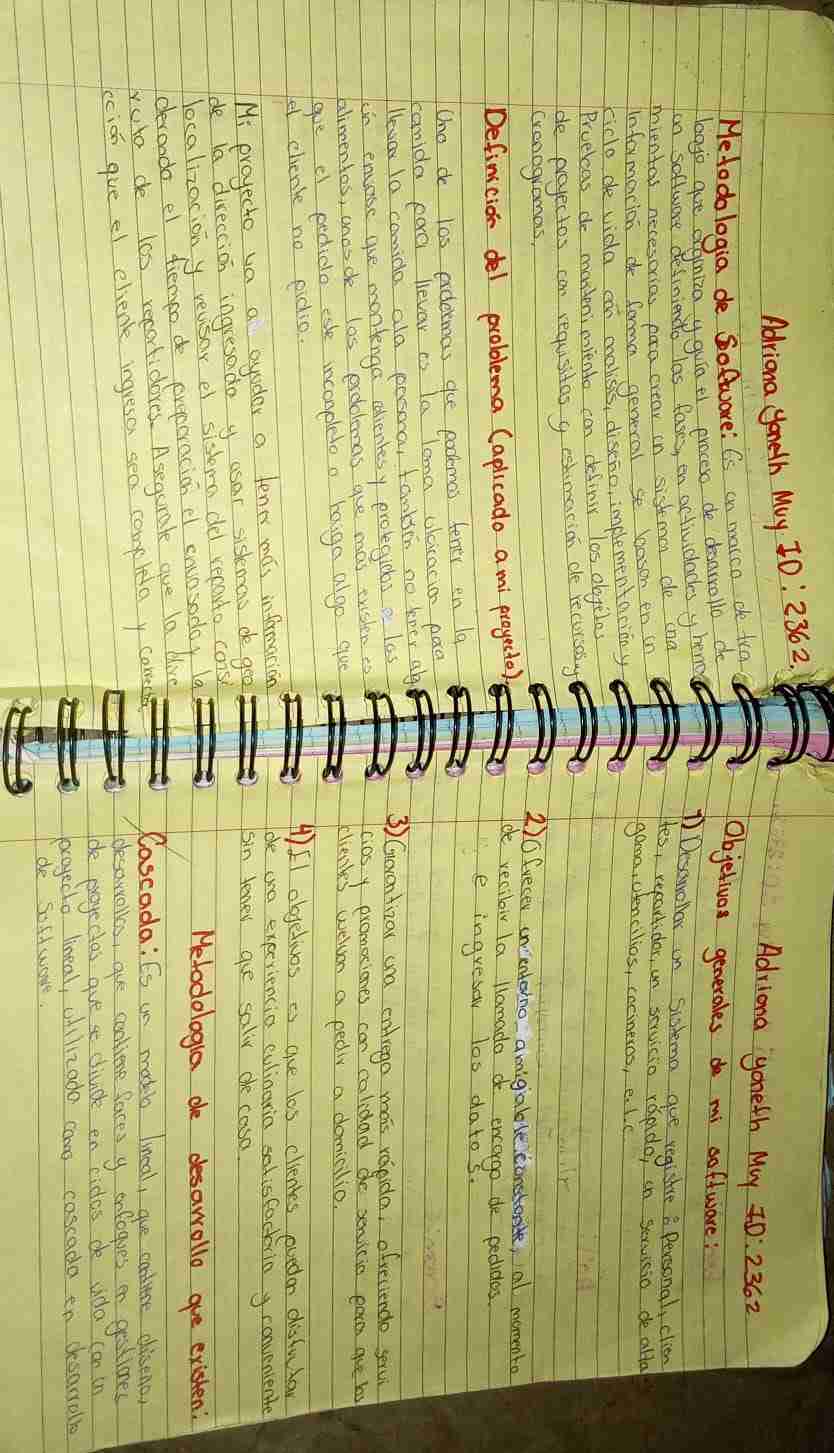 Adriana Yoneth Muy ID: 2362.
Metodologia de Software: Es un marco de tra
bajo que organiza y guía el proceso de desarrollo de
un software definiendo las fases, en actividades y herra
mientas necesarias para crear un sistema de una
Información de forma general se basan en un
ciclo de vida con analisis, diseño, implementación y
Pruebas de mantenimiento con definir los objetos
de proyectos con requisitos y estimación de recursos y
Cronogramas.
Definición del problema (aplicado a mi proyecto).
Uno de los problemas que podemos tener en la
comida para llevar es la lona ubicación para
llevar la comida ala persona, también no tener alg
ún envase que mantenga calientes y protegidos a los
alimentos, unos de los problemas que más existen es
que el pedido este incompleto o traiga algo que
el cliente no pidio.
Mi proyecto va a ayudar a tener más información
de la dirección ingresada y usar sistemas de geo
localización y revisar el sistema del reparto consi
derando el tiempo de preparación el envasado y la
ruta de los repartidores. Asegurate que la dire
cción que el cliente ingresa sea completa y correcta
Adriana Yoneth Muy ID: 2362
Objetivos generales de mi software:
1) Desarrollar un Sistema que registre a personal, clien
tes, repartidor, un servicio rápido, un servicio de alta
gama, utencilios, cocineros, e.t.c
2) Ofrecer un entorno amigable constante, al momento
de recibir la llamada de encargo de pedidos.
e ingresar los datos.
3) Garantizar una entrega más rápida, ofreciendo servi
cios y promociones con calidad de servicio para que los
clientes vuelvan a pedir a domicilio.
4) El objetivos es que los clientes puedan disfrutar
de una experiencia culinaria satisfactoria y conveniente
sin tener que salir de casa.
Metodologia de desarrollo que existen:
Cascada: Es un modelo lineal, que contiene diseño,
desarrollo, que contiene faces y enfoques en gestiones
de proyectos que se divide en ciclos de vida con un
proyecto lineal, utilizado como cascada en desarrollo
de software.